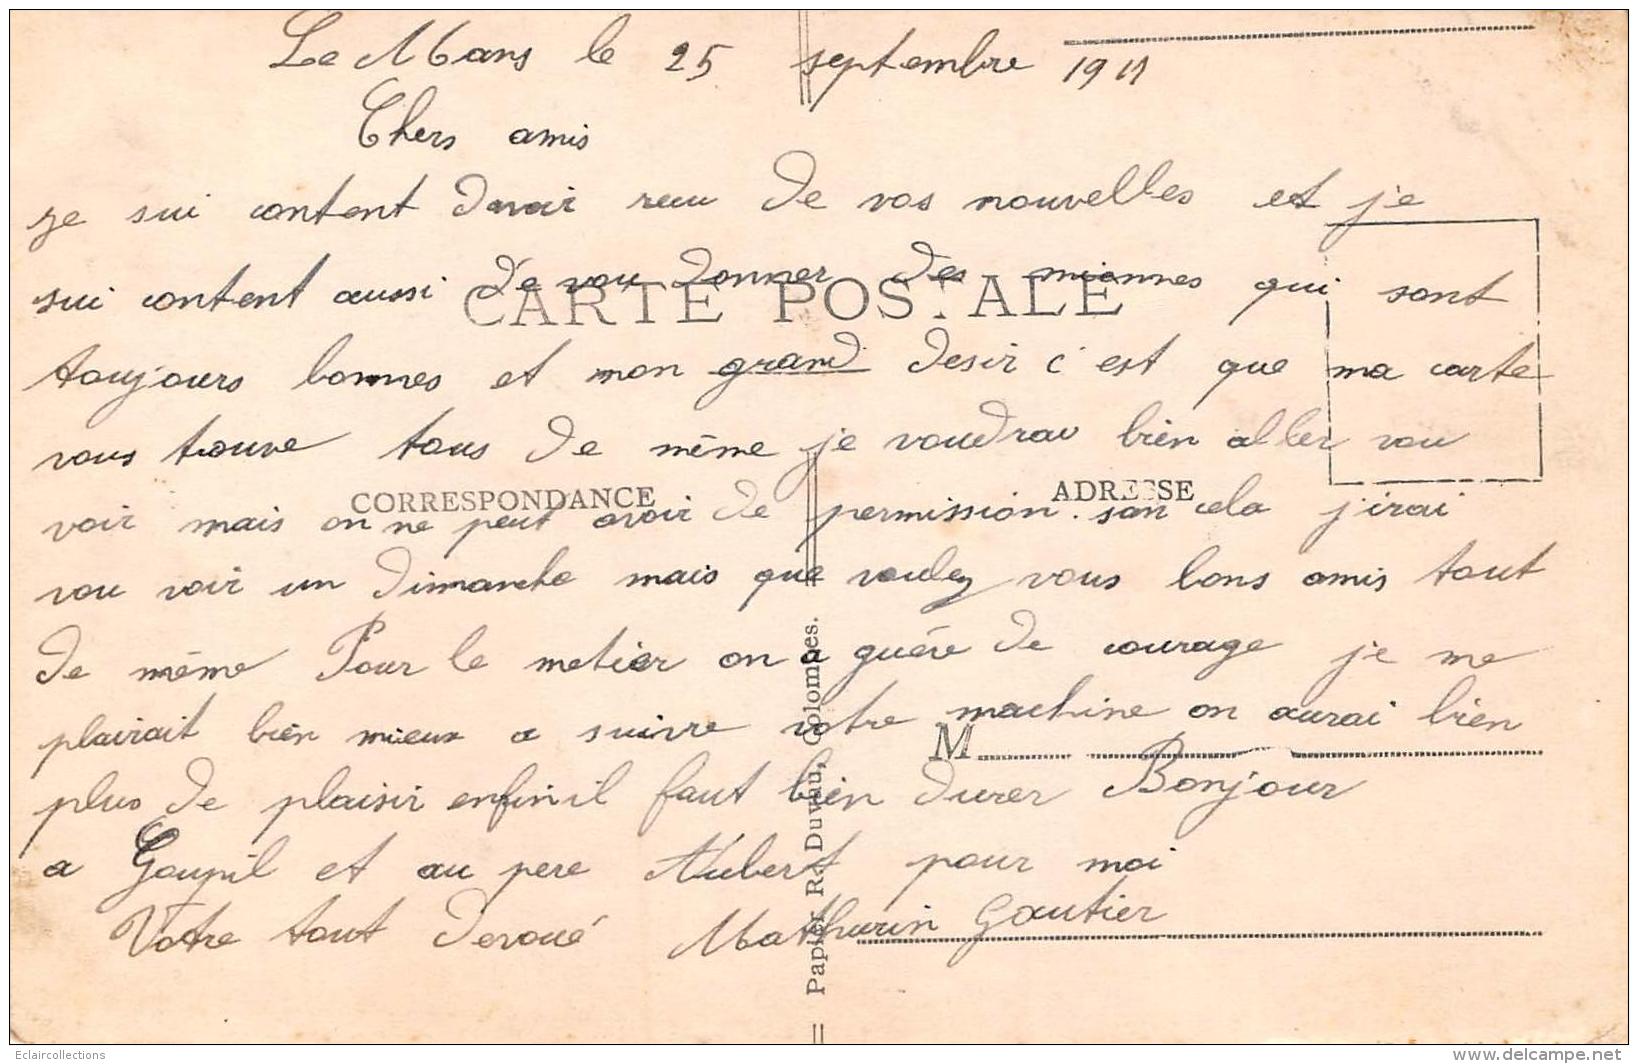 Le Mans le 25 septembre 1911
Chers amis
je sui content davoir recu de vos nouvelles et je
sui content aussi de vou donner des miennes qui sont
CARTE POSTALE
toujours bonnes et mon grand desir c'est que ma carte
vous trouve tous de même je voudrai bien aller vou
CORRESPONDANCE ADRESSE
voir mais on ne peut avoir de permission san cela j'irai
vou voir un dimanche mais que voulez vous bons amis tout
de même Pour le metier on a guére de courage je me
plairait bien mieux a suivre votre machine on aurai bien
M
plus de plaisir enfin il faut bien durer Bonjour
a Goupil et au pere Aubert pour moi
Votre tout devoué Mathurin Gautier
Papier R. Duvau, Colombes.
Eclaircollections
www.delcampe.net